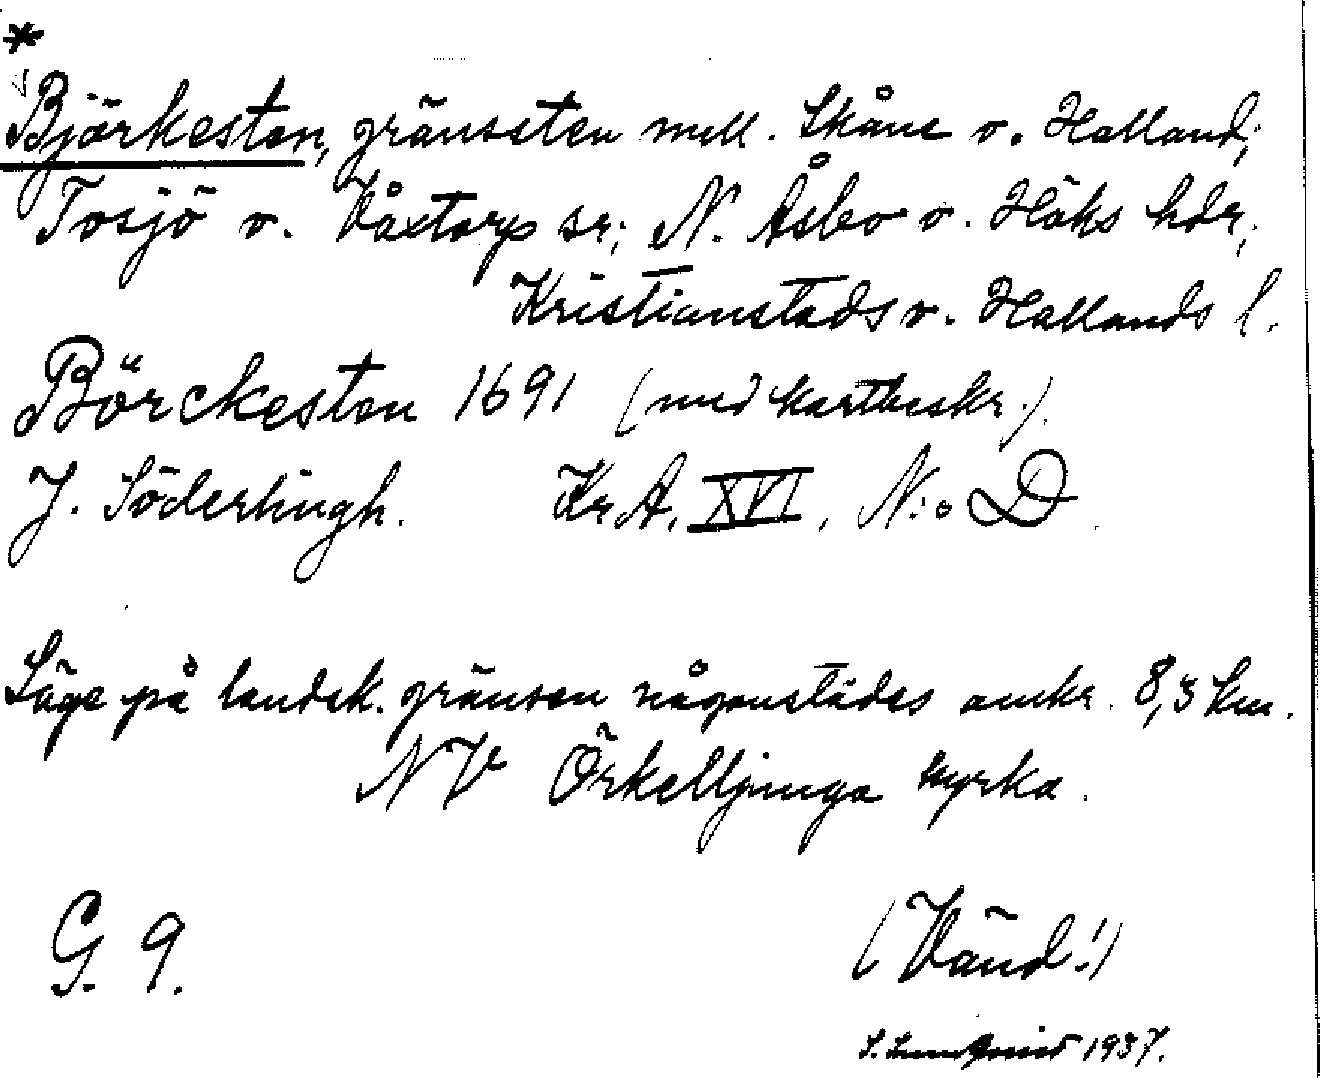 *
Björkesten, gränssten mell. Skåne o. Halland;
Tosjö o. Våxtorps sr; N. Åsbo o. Höks hdr,
Kristianstads o. Hallands l.
Börckesten 1691 (med kartbeskr.).
J. Söderlingh. Kr.A. XVI, N:o D.
Läge på landsk.gränsen någonstädes omkr. 8,5 km.
NV Örkelljunga kyrka.
G. 9.
(Vänd!)
S. Lundqvist 1937.